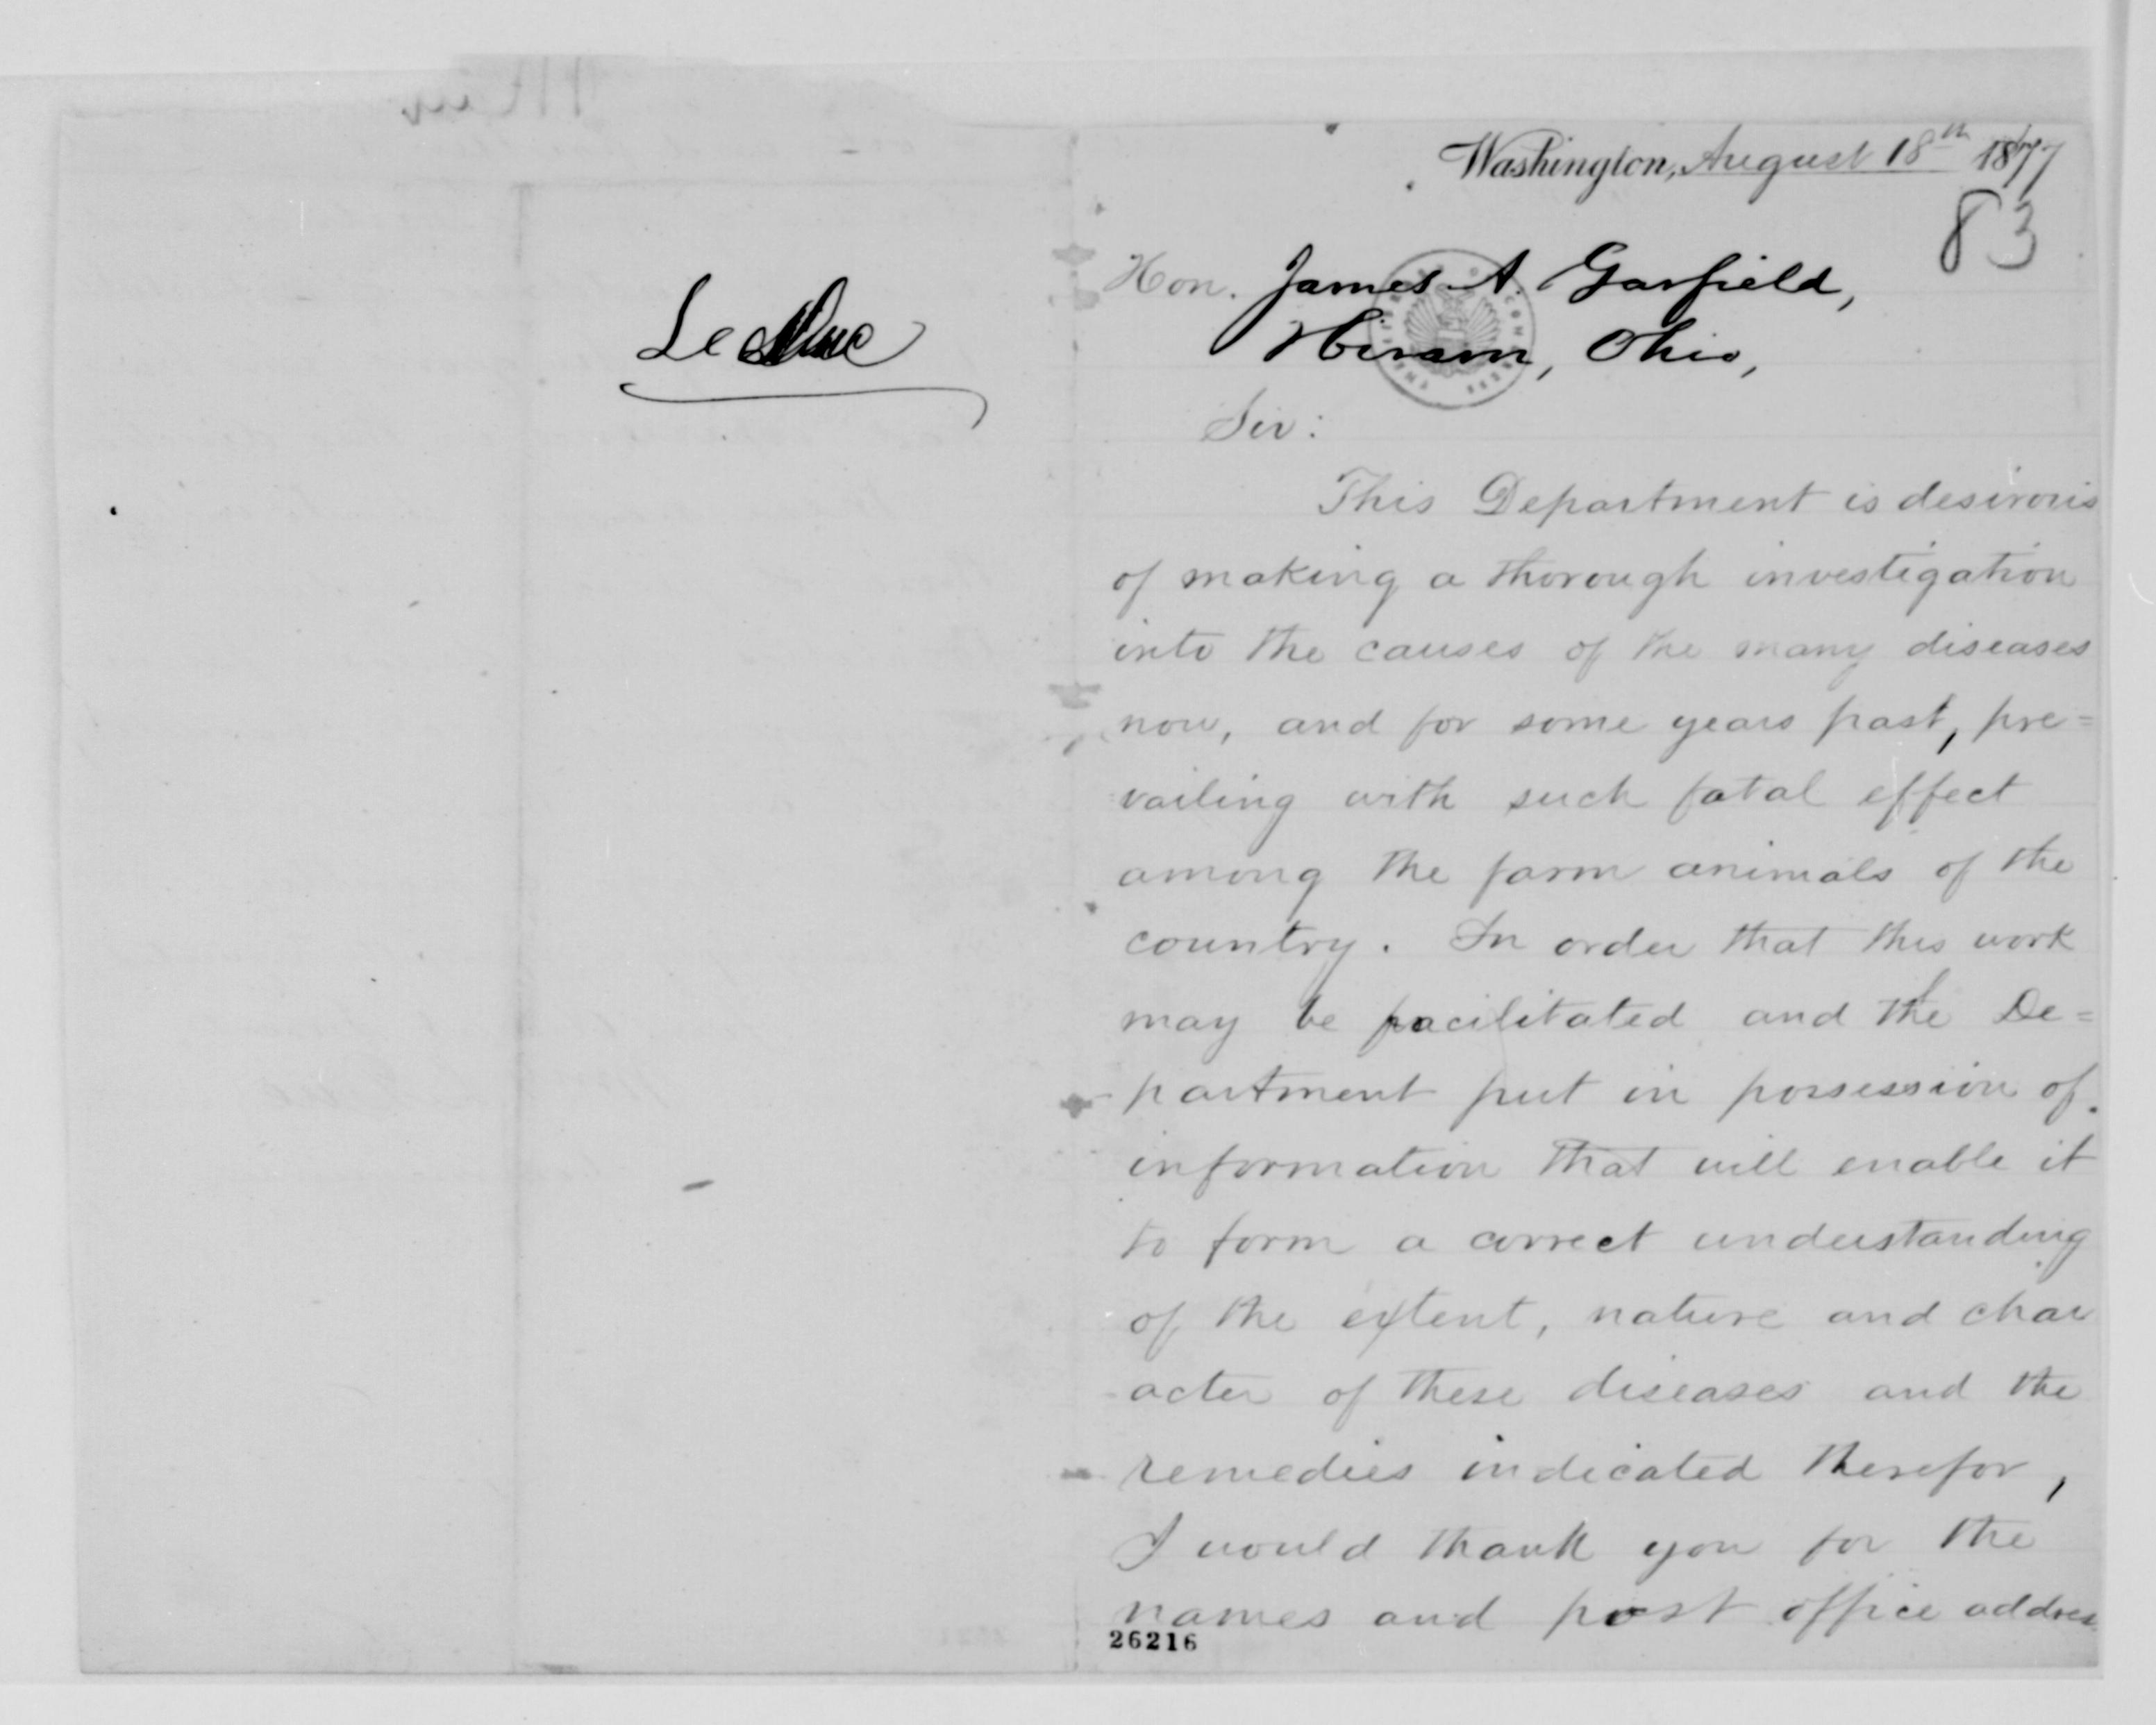 Le Duc
Washington, August 18th 1877
83
Hon. James A. Garfield,
Hiram, Ohio,
Sir:
This Department is desirous
of making a thorough investigation
into the causes of the many diseases
now, and for some years past, pre=
vailing with such fatal effect
among the farm animals of the
country. In order that this work
may be facilitated and the De=
partment put in possession of
information that will enable it
to form a correct understanding
of the extent, nature and char
acter of these diseases and the
remedies indicated therefor,
I would thank you for the
names and post office address
26216